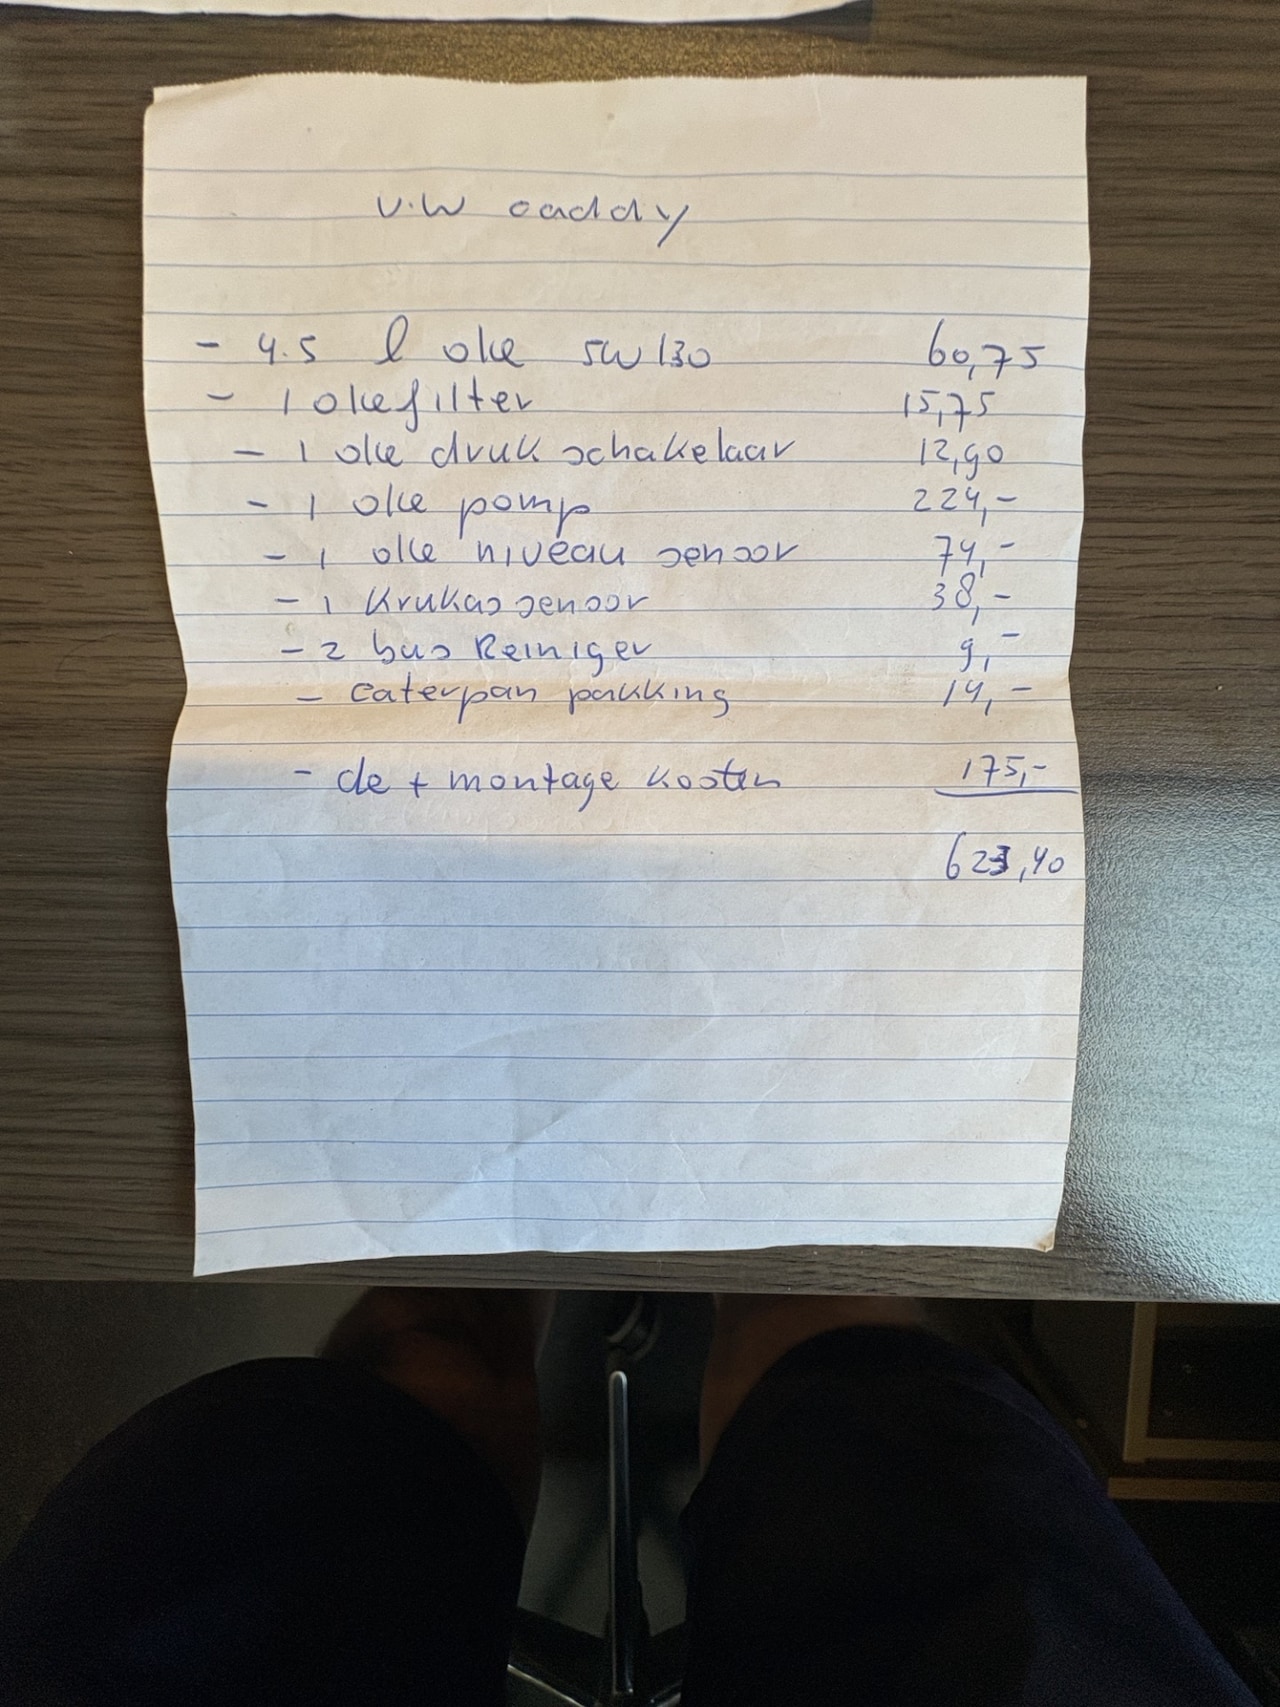 V.W caddy
- 4.5 l olie 5W/30 60,75
- 1 oliefilter 15,75
- 1 olie druk schakelaar 12,90
- 1 olie pomp 224,-
- 1 olie niveau sensor 74,-
- 1 Krukas sensor 38,-
- 2 bus Reiniger 9,-
- Caterpan pakking 14,-
- de + montage kosten 175,-
623,40